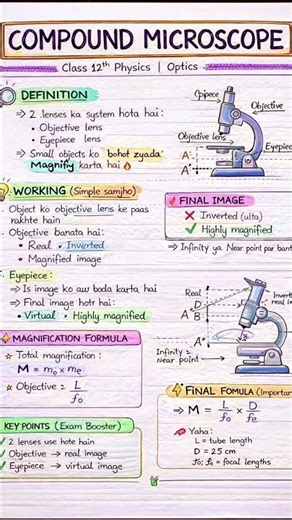 COMPOUND MICROSCOPE
Class 12th Physics | Optics
DEFINITION
⇒ 2 lenses ka system hota hai:
• Objective lens
• Eyepiece lens
⇒ Small objects ko bohot zyada
Magnify karta hai 🔥
Eppiece
Objective
Objective lens
Eyepiece
A'
A"
WORKING (Simple samjho)
Object ko objective lens ke paas
rakhte hain
Objective banata hai:
• Real • Inverted
• Magnified image
Eyepiece:
⇒ Is image ko auw boda karta hai
⇒ Final image hotr hai:
• Virtual • Highly magnified
FINAL IMAGE
❌ Inverted (ulta)
✓ Highly magnified
⇒ Infinity ya Near point par bant
Real
D
A'
B
A"
Infinity =
Near point
MAGNIFICATION FORMULA
☆ Total magnification:
M = mo × me
☆ Objective = L/fo
KEY POINTS (Exam Booster)
✓ 2 lenses use hote hain
✓ Objective → real image
✓ Eyepiece → virtual image
FINAL FOMULA (Important
⇒ M = L/fo × D/fe
Yaha:
L = tube length
D = 25 cm
fo, fe = focal lengths